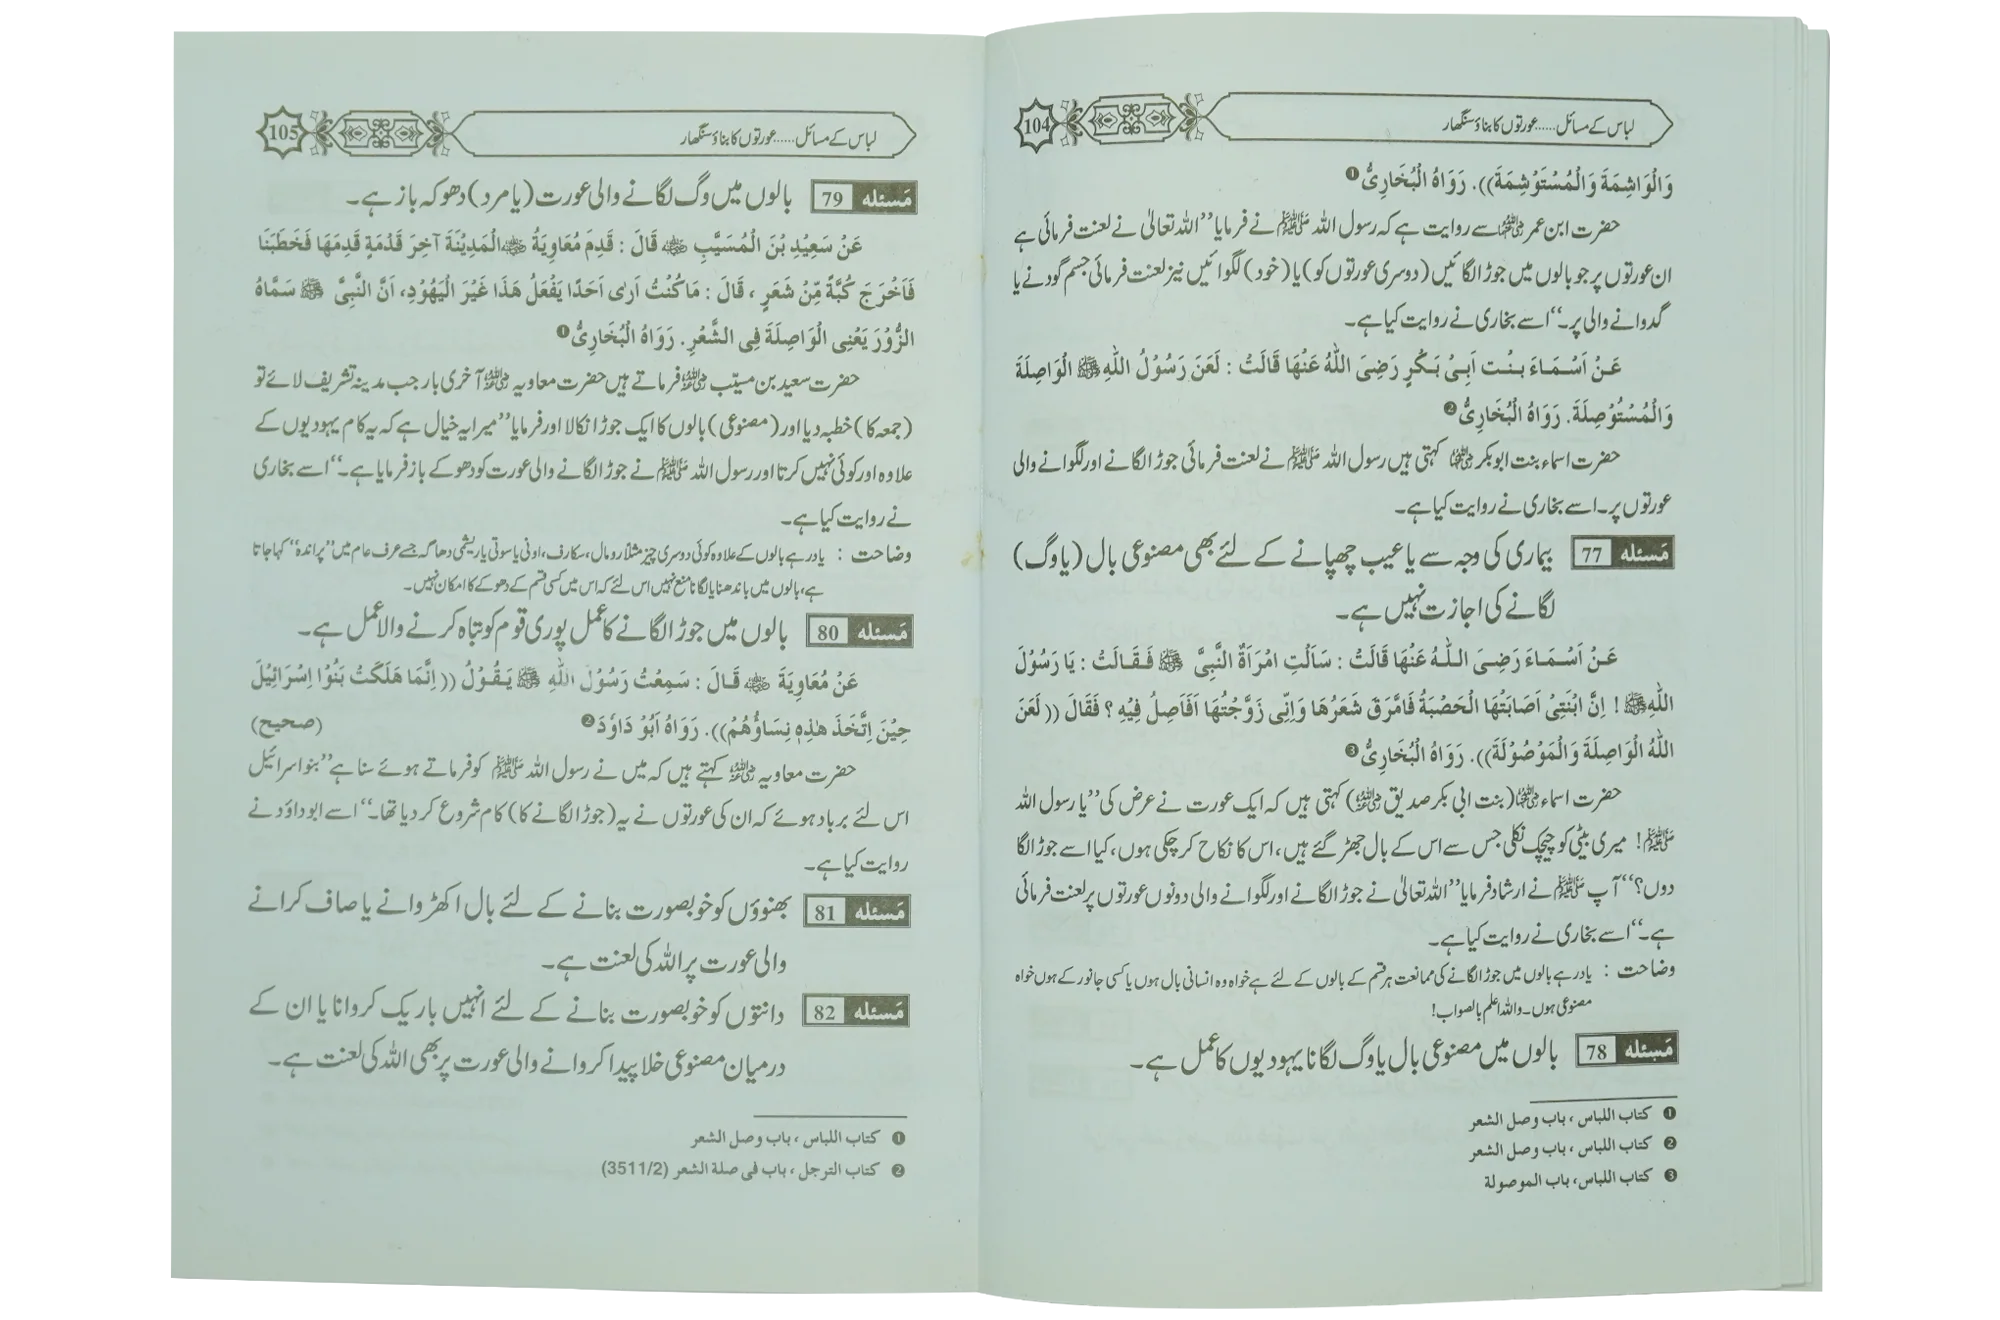 لباس کے مسائل......عورتوں کا بناؤ سنگھار
104
وَالْوَاشِمَةَ وَالْمُسْتَوْشِمَةَ)). رَوَاهُ الْبُخَارِيُّ ❶
حضرت ابن عمر رضی اللہ عنہما سے روایت ہے کہ رسول اللہ ﷺ نے فرمایا ’’اللہ تعالیٰ نے لعنت فرمائی ہے
ان عورتوں پر جو بالوں میں جوڑ لگائیں (دوسری عورتوں کو) یا (خود) لگوائیں نیز لعنت فرمائی جسم گودنے یا
گدوانے والی پر۔‘‘ اسے بخاری نے روایت کیا ہے۔
عَنْ اَسْمَاءَ بِنْتِ اَبِيْ بَكْرٍ رَضِيَ اللّٰهُ عَنْهَا قَالَتْ : لَعَنَ رَسُوْلُ اللّٰهِ ﷺ الْوَاصِلَةَ
وَالْمُسْتَوْصِلَةَ. رَوَاهُ الْبُخَارِيُّ ❷
حضرت اسماء بنت ابوبکر رضی اللہ عنہا کہتی ہیں رسول اللہ ﷺ نے لعنت فرمائی جوڑ لگانے اور لگوانے والی
عورتوں پر۔ اسے بخاری نے روایت کیا ہے۔
مَسئله 77 بیماری کی وجہ سے یا عیب چھپانے کے لئے بھی مصنوعی بال (یا وگ)
لگانے کی اجازت نہیں ہے۔
عَنْ اَسْمَاءَ رَضِيَ اللّٰهُ عَنْهَا قَالَتْ : سَاَلَتِ امْرَاَةٌ النَّبِيَّ ﷺ فَقَالَتْ : يَا رَسُوْلَ
اللّٰهِ ﷺ ! اِنَّ ابْنَتِيْ اَصَابَتْهَا الْحَصْبَةُ فَامَّرَقَ شَعَرُهَا وَاِنِّي زَوَّجْتُهَا اَفَاَصِلُ فِيْهِ ؟ فَقَالَ (( لَعَنَ
اللّٰهُ الْوَاصِلَةَ وَالْمَوْصُوْلَةَ)). رَوَاهُ الْبُخَارِيُّ ❸
حضرت اسماء رضی اللہ عنہا (بنت ابی بکر صدیق رضی اللہ عنہ) کہتی ہیں کہ ایک عورت نے عرض کی ’’یا رسول اللہ
ﷺ! میری بیٹی کو چیچک نکلی جس سے اس کے بال جھڑ گئے ہیں، اس کا نکاح کر چکی ہوں، کیا اسے جوڑ لگا
دوں؟‘‘ آپ ﷺ نے ارشاد فرمایا ’’اللہ تعالیٰ نے جوڑ لگانے اور لگوانے والی دونوں عورتوں پر لعنت فرمائی
ہے۔‘‘ اسے بخاری نے روایت کیا ہے۔
وضاحت : یاد رہے بالوں میں جوڑ لگانے کی ممانعت ہر قسم کے بالوں کے لئے ہے خواہ وہ انسانی بال ہوں یا کسی جانور کے ہوں خواہ
مصنوعی ہوں۔ واللہ اعلم بالصواب!
مَسئله 78 بالوں میں مصنوعی بال یا وگ لگانا یہودیوں کا عمل ہے۔
❶ كتاب اللباس ، باب وصل الشعر
❷ كتاب اللباس ، باب وصل الشعر
❸ كتاب اللباس، باب الموصولة
لباس کے مسائل......عورتوں کا بناؤ سنگھار
105
مَسئله 79 بالوں میں وگ لگانے والی عورت (یا مرد) دھوکہ باز ہے۔
عَنْ سَعِيْدِ بْنِ الْمُسَيَّبِ رضی اللہ عنہ قَالَ : قَدِمَ مُعَاوِيَةُ رضی اللہ عنہ الْمَدِيْنَةَ آخِرَ قَدْمَةٍ قَدِمَهَا فَخَطَبَنَا
فَاَخْرَجَ كُبَّةً مِّنْ شَعَرٍ ، قَالَ : مَا كُنْتُ اَرٰى اَحَدًا يَفْعَلُ هٰذَا غَيْرَ الْيَهُوْدِ، اَنَّ النَّبِيَّ ﷺ سَمَّاهُ
الزُّوْرَ يَعْنِي الْوَاصِلَةَ فِي الشَّعْرِ. رَوَاهُ الْبُخَارِيُّ ❶
حضرت سعید بن مسیّب رضی اللہ عنہ فرماتے ہیں حضرت معاویہ رضی اللہ عنہ آخری بار جب مدینہ تشریف لائے تو
(جمعہ کا) خطبہ دیا اور (مصنوعی) بالوں کا ایک جوڑا نکالا اور فرمایا ’’میرا یہ خیال ہے کہ یہ کام یہودیوں کے
علاوہ اور کوئی نہیں کرتا اور رسول اللہ ﷺ نے جوڑ لگانے والی عورت کو دھوکے باز فرمایا ہے۔‘‘ اسے بخاری
نے روایت کیا ہے۔
وضاحت : یاد رہے بالوں کے علاوہ کوئی دوسری چیز مثلاً رومال، سکارف، اونی یا سوتی یا ریشمی دھاگہ جسے عرف عام میں ’’پراندہ‘‘ کہا جاتا
ہے، بالوں میں باندھنا یا لگانا منع نہیں اس لئے کہ اس میں کسی قسم کے دھوکے کا امکان نہیں۔
مَسئله 80 بالوں میں جوڑ لگانے کا عمل پوری قوم کو تباہ کرنے والا عمل ہے۔
عَنْ مُعَاوِيَةَ رضی اللہ عنہ قَالَ : سَمِعْتُ رَسُوْلَ اللّٰهِ ﷺ يَقُوْلُ (( اِنَّمَا هَلَكَتْ بَنُوْا اِسْرَائِيْلَ
حِيْنَ اِتَّخَذَ هٰذِهٖ نِسَاؤُهُمْ)). رَوَاهُ اَبُوْ دَاوٗدَ ❷ (صحيح)
حضرت معاویہ رضی اللہ عنہ کہتے ہیں کہ میں نے رسول اللہ ﷺ کو فرماتے ہوئے سنا ہے ’’بنو اسرائیل
اس لئے برباد ہوئے کہ ان کی عورتوں نے یہ (جوڑ لگانے کا) کام شروع کر دیا تھا۔‘‘ اسے ابوداؤد نے
روایت کیا ہے۔
مَسئله 81 بھنوؤں کو خوبصورت بنانے کے لئے بال اکھڑوانے یا صاف کرانے
والی عورت پر اللہ کی لعنت ہے۔
مَسئله 82 دانتوں کو خوبصورت بنانے کے لئے انہیں باریک کروانا یا ان کے
درمیان مصنوعی خلا پیدا کروانے والی عورت پر بھی اللہ کی لعنت ہے۔
❶ كتاب اللباس ، باب وصل الشعر
❷ كتاب الترجل ، باب فى صلة الشعر (3511/2)